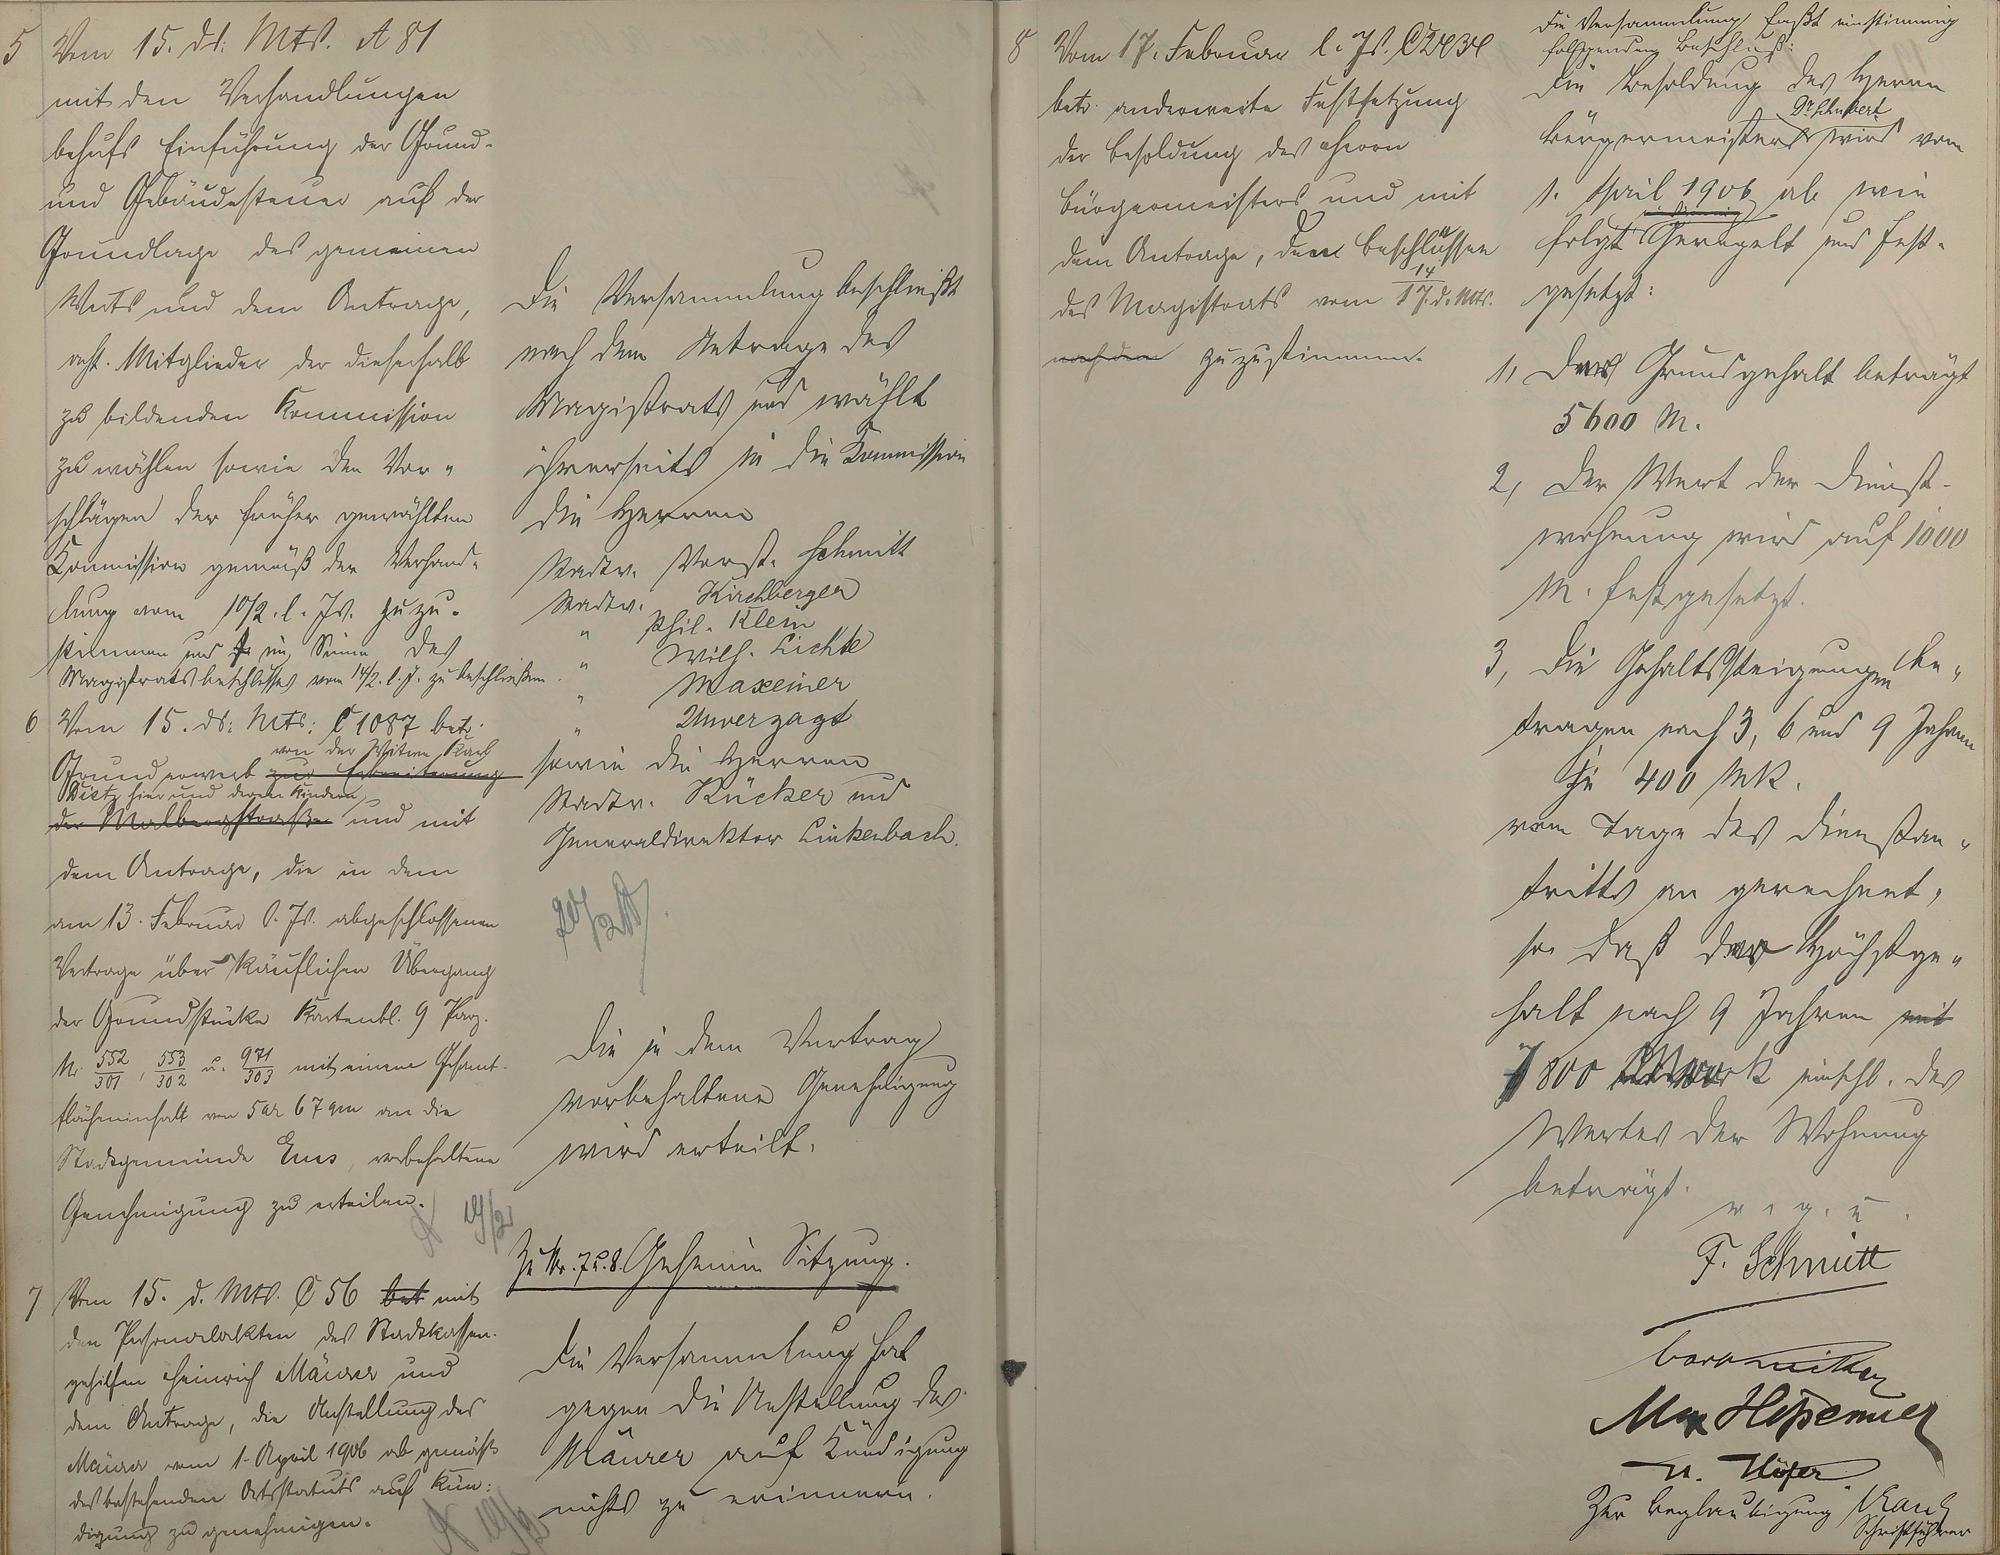 5 Vom 15. ds. Mts. A 81
mit den Verhandlungen
behufs Einführung der Grund-
und Gebäudesteuer auf der
Grundlage des gemeinen
Werts und dem Antrage,
acht Mitglieder der dieserhalb
zu bildenden Kommission
zu wählen sowie den Vor-
schlägen der früher gewählten
Kommission gemäß der Verhand-
lung vom 10/2. l. Js. zuzu-
stimmen und im Sinne des
Magistratsbeschlusses vom 14/2. l. J. zu beschließen.
Die Versammlung beschließt
nach dem Antrage des
Magistrats und wählt
ihrerseits in die Kommission
die Herren
Stadtv. Vorst. Schmitt
Stadtv. Kirchberger
" Phil. Klein
" Wilh. Lichte
" Maxeiner
" Unverzagt
sowie die Herren
Stadtv. Rücker und
Generaldirektor Linkenbach.
6 Vom 15. ds. Mts. C 1087 betr.
von der Witwe Karl
Grunderwerb zur Erweiterung
Dietz hier und deren Kindern
der Malbergstraße und mit
dem Antrage, die in dem
am 13. Februar l. Js. abgeschlossenen
Vertrage über käuflichen Übergang
der Grundstücke Kartenbl. 9 Parz.
Nr. 552/301, 553/302 u. 971/303 mit einem Gesamt-
flächeninhalt von 5 ar 67 qm an die
Stadtgemeinde Ems, vorbehaltene
Genehmigung zu erteilen.
19/2
Die in dem Vertrag
vorbehaltene Genehmigung
wird erteilt.
Zu Nr. 7 u. 8. Geheime Sitzung.
7 Vom 15. d. Mts. C 56 bet mit
den Personalakten des Stadtkassen-
gehilfen Heinrich Mäurer und
dem Antrage, die Anstellung des
Mäurer vom 1. April 1906 ab gemäß
des bestehenden Ortsstatuts auf Kün-
digung zu genehmigen.
19/2
Die Versammlung hat
gegen die Anstellung des
Mäurer auf Kündigung
nichts zu erinnern.
8 Vom 17. Februar l. Js. C
betr. anderweite Festsetzung
der Besoldung des Herrn
Bürgermeisters und mit
dem Antrage, den Beschlüssen
des Magistrats vom 14/17. d. Mts.
nach den zuzustimmen.
Die Versammlung faßt einstimmig
folgenden Beschluß:
Die Besoldung des Herrn
Dr. Schubert
Bürgermeisters wird vom
1. April 1906 ab wie
folgt geregelt und fest-
gesetzt:
1, Das Grundgehalt beträgt
5600 M.
2, Der Wert der Dienst-
wohnung wird auf 1000
M. festgesetzt.
3, Die Gehaltssteigungen be-
tragen nach 3, 6 und 9 Jahren
je 400 Mk.
vom Tage des Dienstan-
tritts an gerechnet,
so daß das Höchstge-
halt nach 9 Jahren mit
7800 Mark einschl. des
Wertes der Wohnung
beträgt.
v. g. u.
F. Schmitt
Max
Höfer
Zur Beglaubigung
Schriftführer